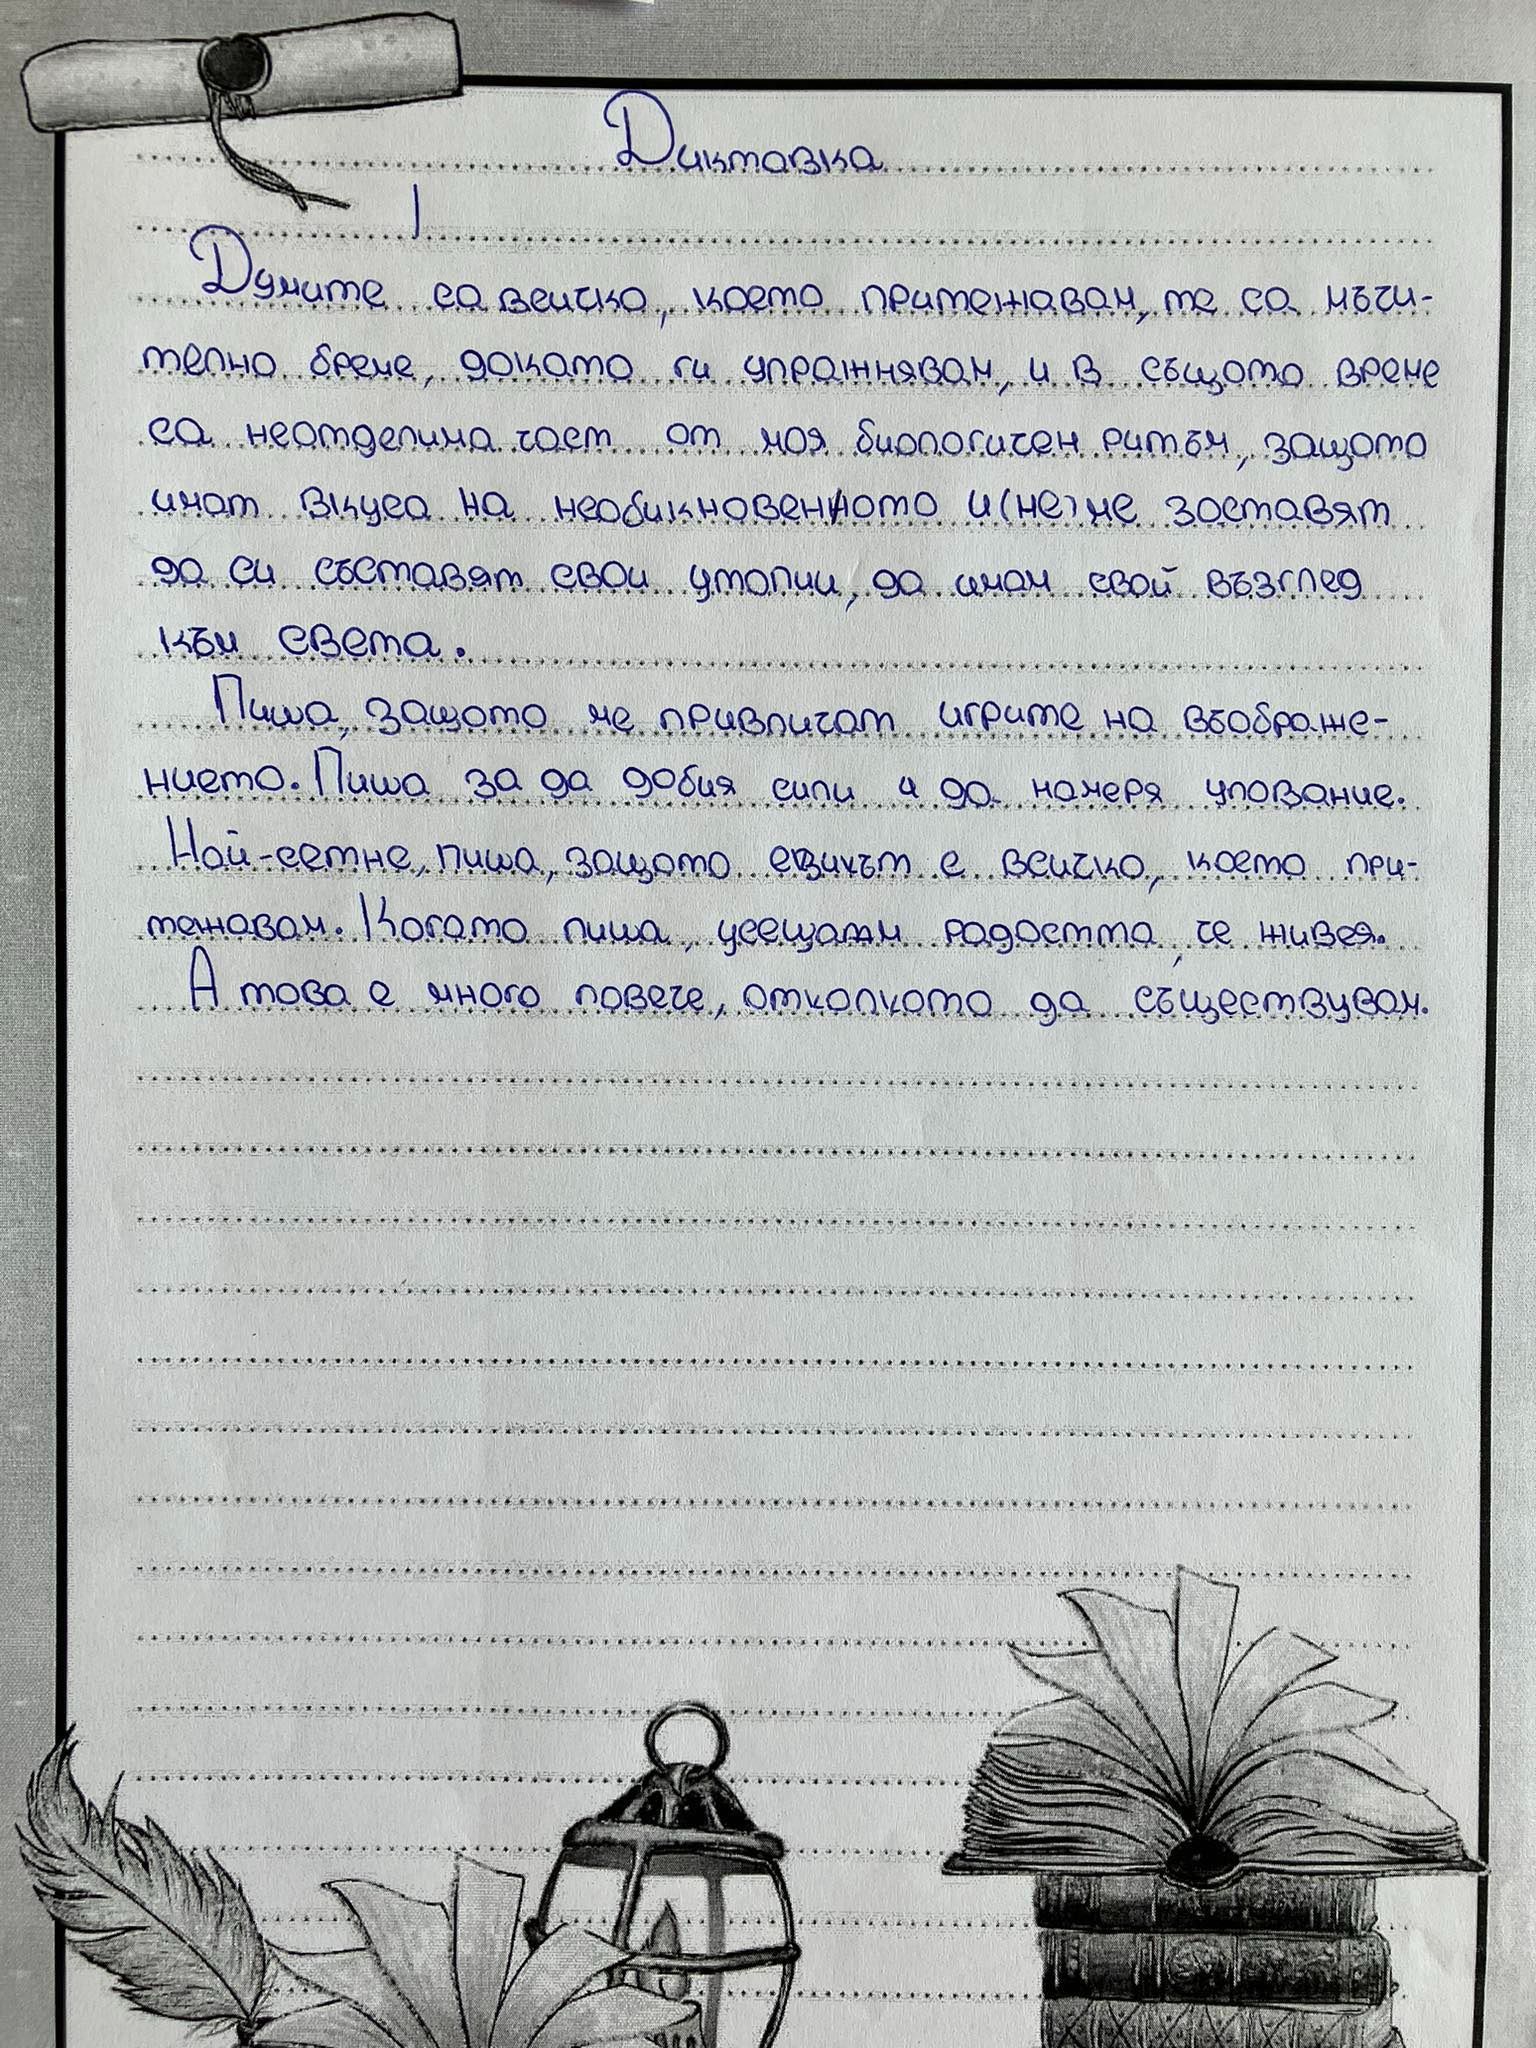 Диктовка
Думите са всичко, което притежавам, те са мъчи-
телно бреме, докато ги упражнявам, и в същото време
са неотделима част от моя биологичен ритъм, защото
имат вкуса на необикновенното и (не) ме заставят
да си съставят свои утопии, да имам свой възглед
към света.
Пиша, защото ме привличат игрите на въображе-
нието. Пиша за да добия сили и да намеря упование.
Най-сетне, пиша, защото езикът е всичко, което при-
тежавам. Когато пиша, усещам радостта, че живея.
А това е много повече, отколкото да съществувам.